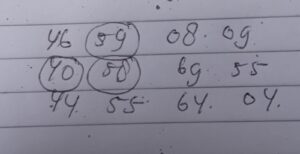 46 59 08. 09.
40 58 69 55
44. 55 64. 04.